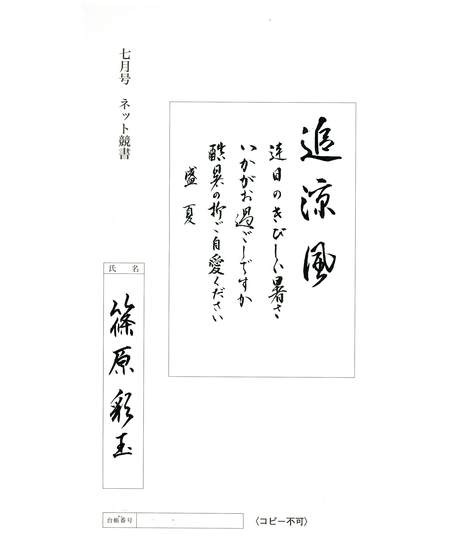 追涼風
連日のきびしい暑さ
いかがお過ごしですか
酷暑の折ご自愛ください
盛夏
七月号 ネット競書
氏名
篠原彩玉
台帳番号
〈コピー不可〉